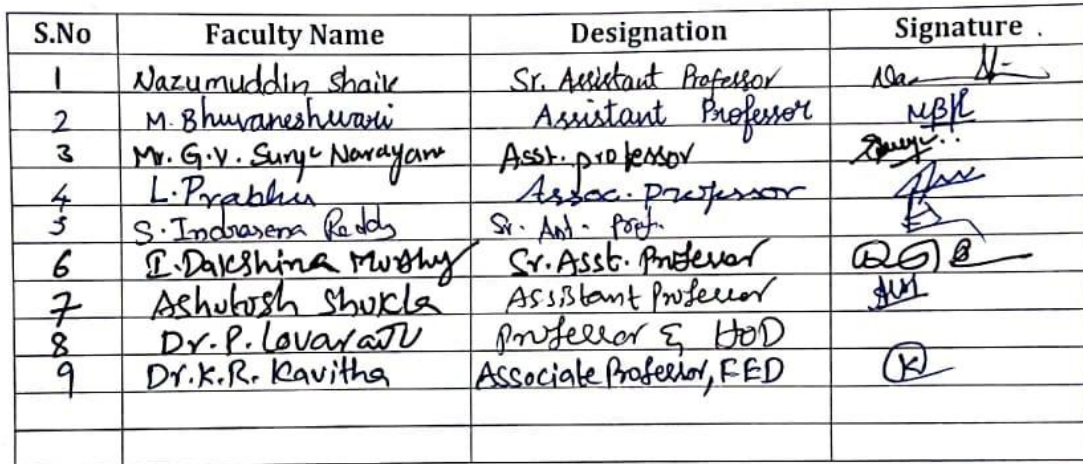 S.No Faculty Name Designation Signature
1 Nazumuddin Shaik Sr. Assistant Professor
2 M. Bhuvaneshwari Assistant Professor
3 Mr. G.V. Surya Narayana Asst. professor
4 L. Prabhu Assoc. professor
5 S. Indrasena Reddy Sr. Ast. Prof.
6 I. Dakshina Murthy Sr. Asst. Professor
7 Ashutosh Shukla Assistant Professor
8 Dr. P. Lovaraju Professor & HoD
9 Dr. K.R. Kavitha Associate Professor, FED K